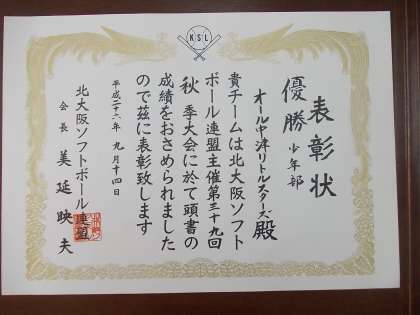 KSL
表彰状
優勝 少年部
オール中津リトルスターズ殿
貴チームは北大阪ソフト
ボール連盟主催第三十九回
秋季大会に於て頭書の
成績をおさめられました
ので茲に表彰致します
平成二十六年 九月十四日
北大阪ソフトボール連盟
会長 美延映夫